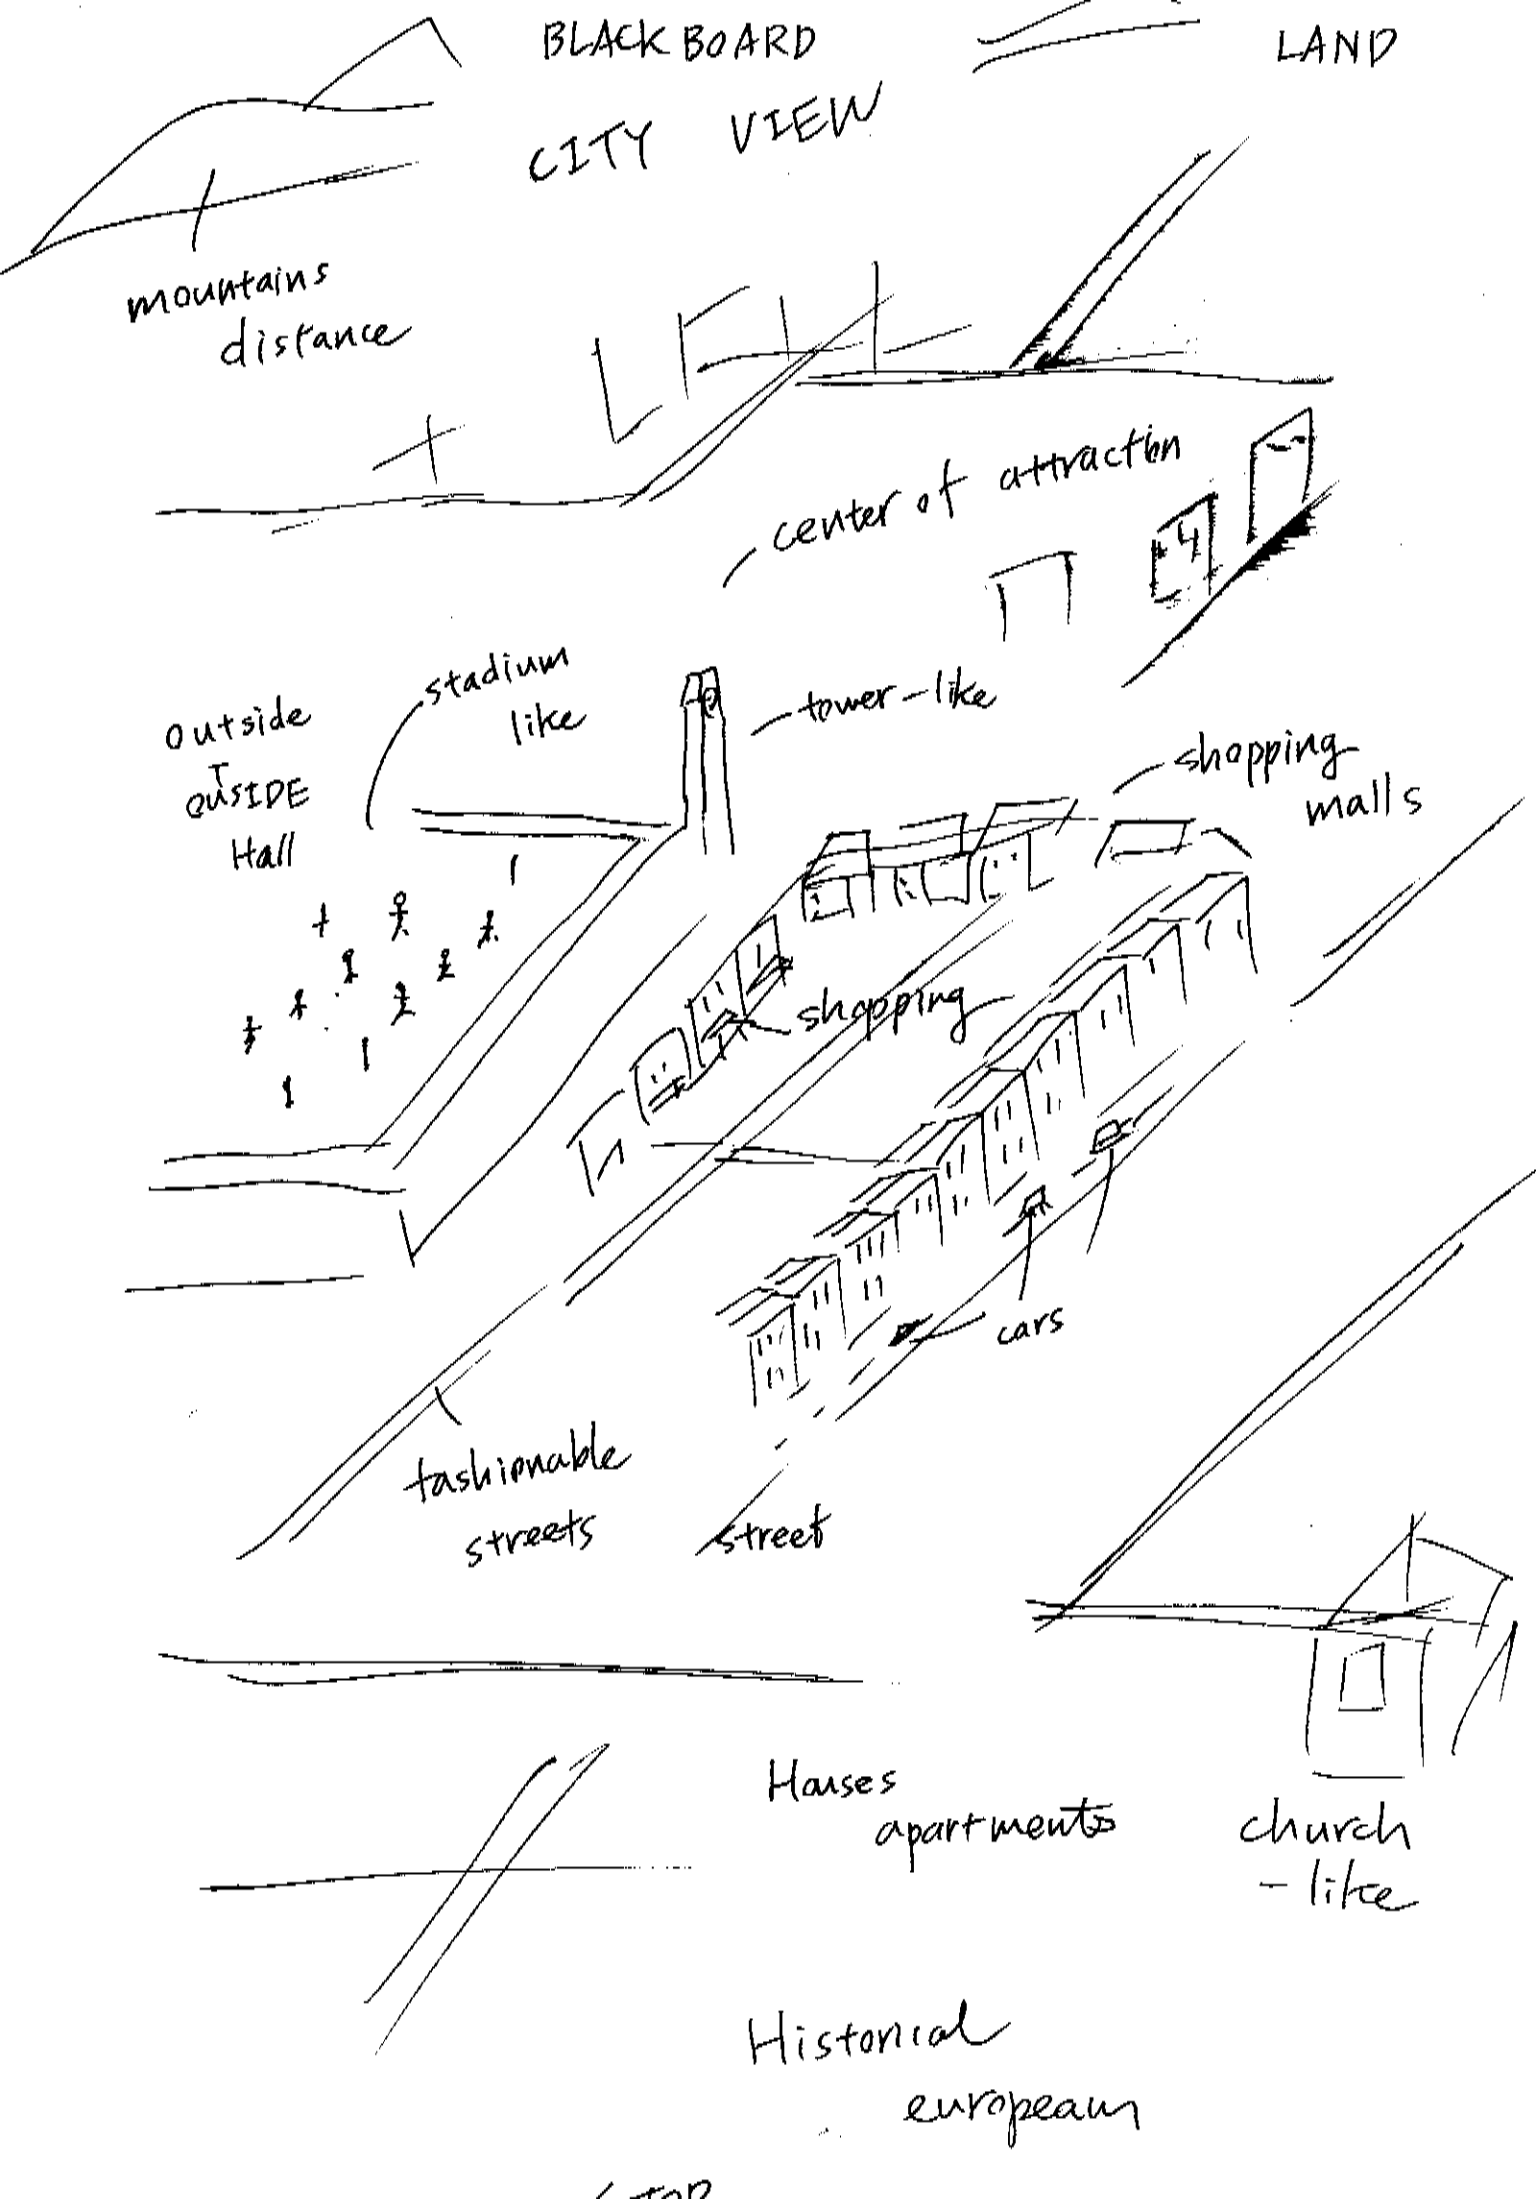 BLACKBOARD
LAND
CITY VIEW
mountains
distance
center of attraction
stadium
like
outside
OUSIDE
Hall
tower-like
shopping
malls
shopping
cars
fashionable
streets
street
Houses
apartments
church
-like
Historical
european